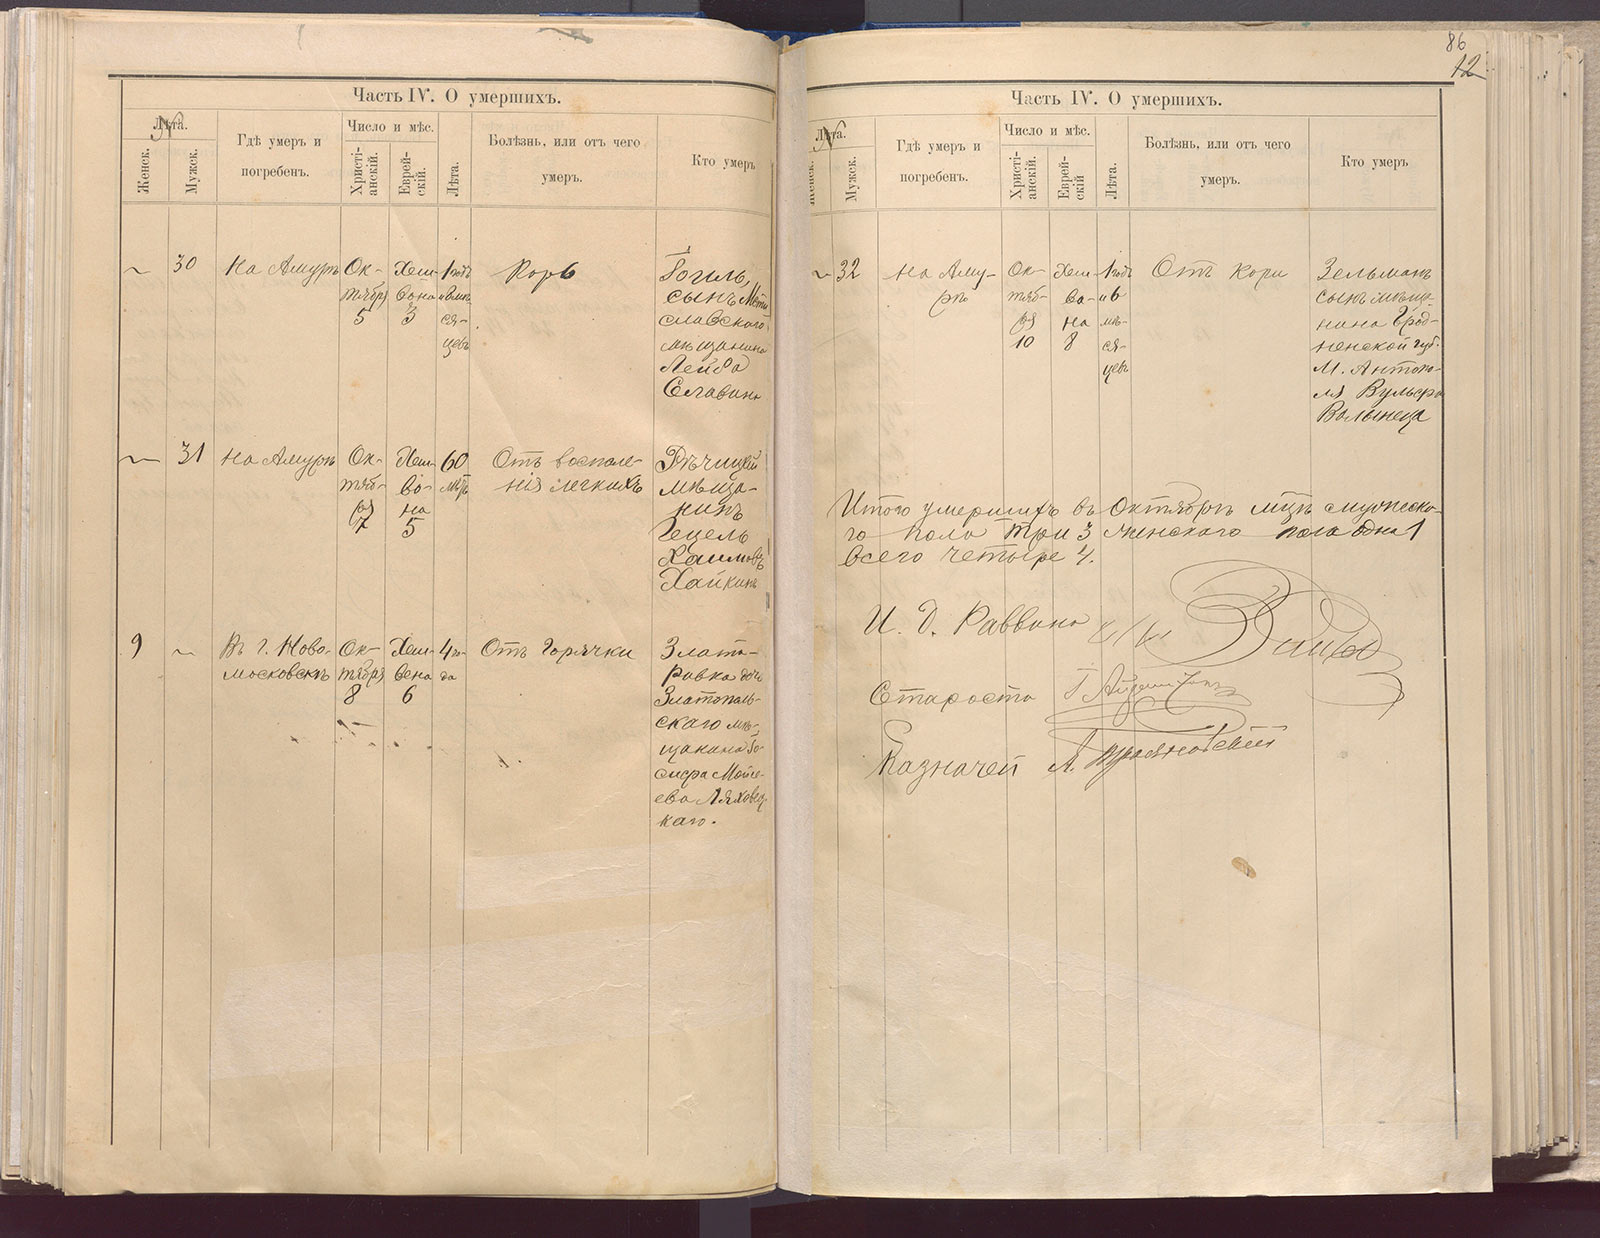 Часть IV. О умершихъ.
Лѣта.
№
Женск.
Мужск.
Гдѣ умеръ и
погребенъ.
Число и мѣс.
Христі-
анскій.
Еврей-
скій.
Лѣта.
Болѣзнь, или отъ чего
умеръ.
Кто умеръ
30
На Амурѣ
Ок-
тября
5
Хеш-
вона
3
1 годъ
ся-
цевъ
Корь
Гогиль,
сынъ Мсти
славского
мѣщанина
Лейба
Славина
31
на Амурѣ
Ок-
тяб-
ря
7
Хеш-
во-
на
5
60
лѣтъ
Отъ воспале-
нія легкихъ
Рѣчицкій
мѣща-
нинъ
Гецель
Хаимовъ
Хайкинъ
9
Въ г. Ново-
московскѣ
Ок-
тября
8
Хеш-
вена
6
4 го-
да
Отъ Горячки
Злата-
Ривка дочь
Златополь-
скаго мѣ-
щанина Іо-
сифа Мойсе-
ева Ляховец-
каго.
86
12
Часть IV. О умершихъ.
Лѣта.
№
Женск.
Мужск.
Гдѣ умеръ и
погребенъ.
Число и мѣс.
Христі-
анскій.
Еврей-
скій
Лѣта.
Болѣзнь, или отъ чего
умеръ.
Кто умеръ
32
на Аму-
рѣ
Ок-
тяб-
ря
10
Хеш-
во-
на
8
1 годъ
и 6
мѣ-
ся-
цевъ
Отъ кори
Зельманъ
сынъ мѣща-
нина Грод-
ненской губ.
М. Антопо-
ля Вульфа
Волынеца
Итого умершихъ въ Октябрѣ мцѣ мужеско-
го пола три 3 женскаго пола одна 1
всего четыре 4.
И. Д. Раввина
Староста
Казначей Л. Трояновскій